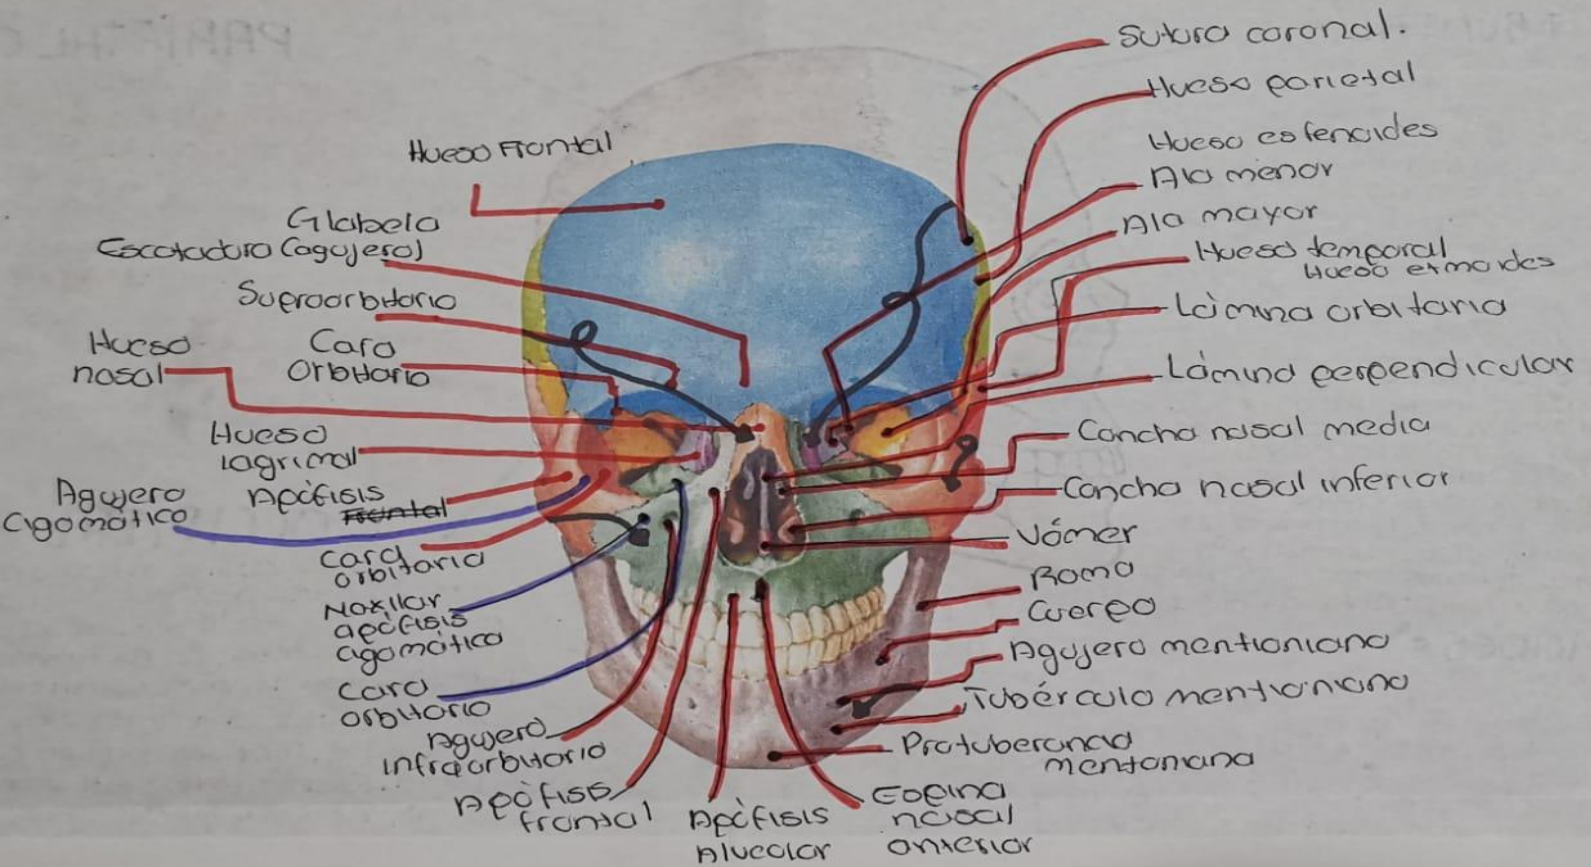 Hueso Frontal
Glabela
Escotadura (agujero)
Supraorbitario
Hueso
nasal
Cara
Orbitaria
Hueso
lagrimal
Agujero
cigomático
Apófisis
Frontal
cara
orbitaria
Maxilar
apófisis
cigomático
cara
orbitario
Agujero
infraorbitario
Apófisis
frontal
Apófisis
Alveolar
Espina
nasal
anterior
Sutura coronal.
Hueso parietal
Hueso esfenoides
Ala menor
Ala mayor
Hueso temporal
Hueso etmoides
Lámina orbitaria
Lámina perpendicular
Concha nasal media
Concha nasal inferior
Vómer
Rama
Cuerpo
Agujero mentoniano
Tubérculo mentoniano
Protuberancia
mentoniana